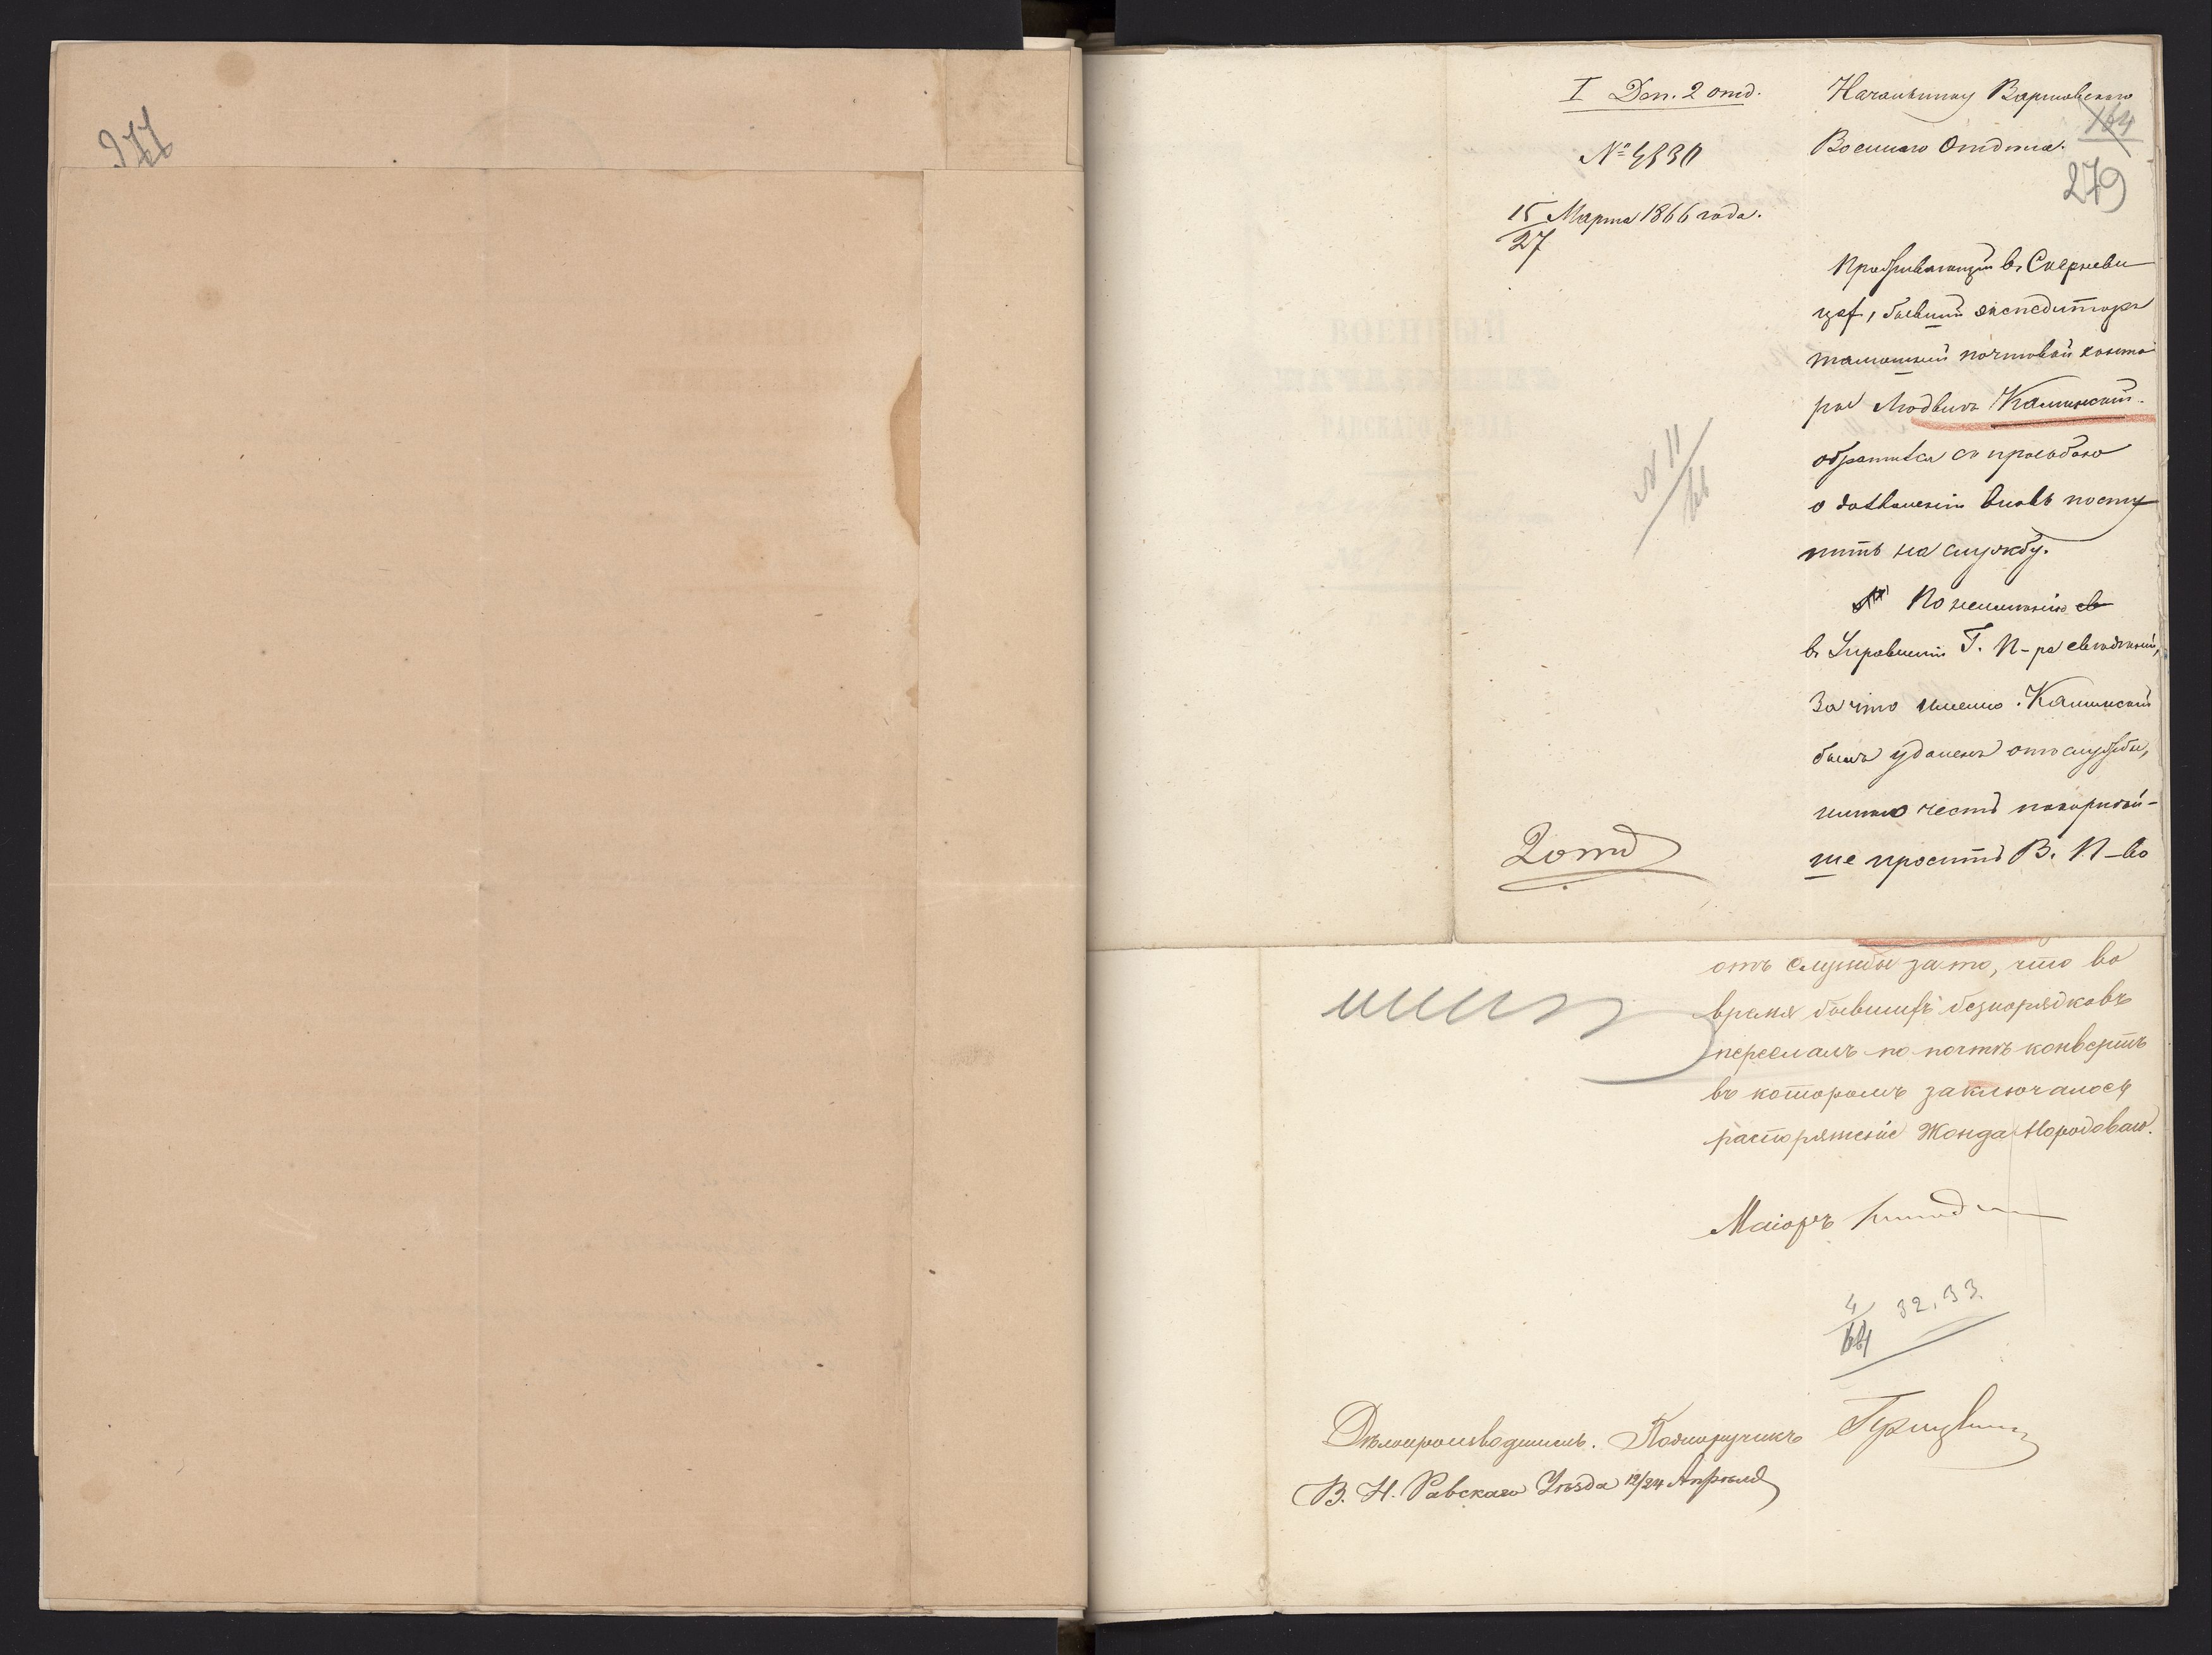 277
I Деп. 2 отд.
№ 4830
15/27 Марта 1866 года.
Начальнику Варшавскаго
Военнаго Отдѣла.
164
279
Пребывающій въ Скерневи
цах, бывшій экспедиторъ
тамошней почтовой конто
ры Людвигъ Калинскій.
обратился съ просьбою
о дозволеніи вновь посту
пить на службу.
По неимѣнію
въ Управленіи Г. П-ра свѣдѣній,
за что именно Калинскій
былъ удаленъ отъ службы,
имѣю честь покорнѣй-
ше просить В. П-во
№ 11/66
2 отд
отъ службы за то, что во
время бывшихъ безпорядковъ
переслалъ по почтѣ конвертъ
въ которомъ заключалось
распоряженіе Жонда Народоваго.
Маіоръ
4/64 32, 33.
Дѣлопроизводитель. Подпоручикъ
В. Н. Равскаго Уѣзда 12/24 Апрѣля